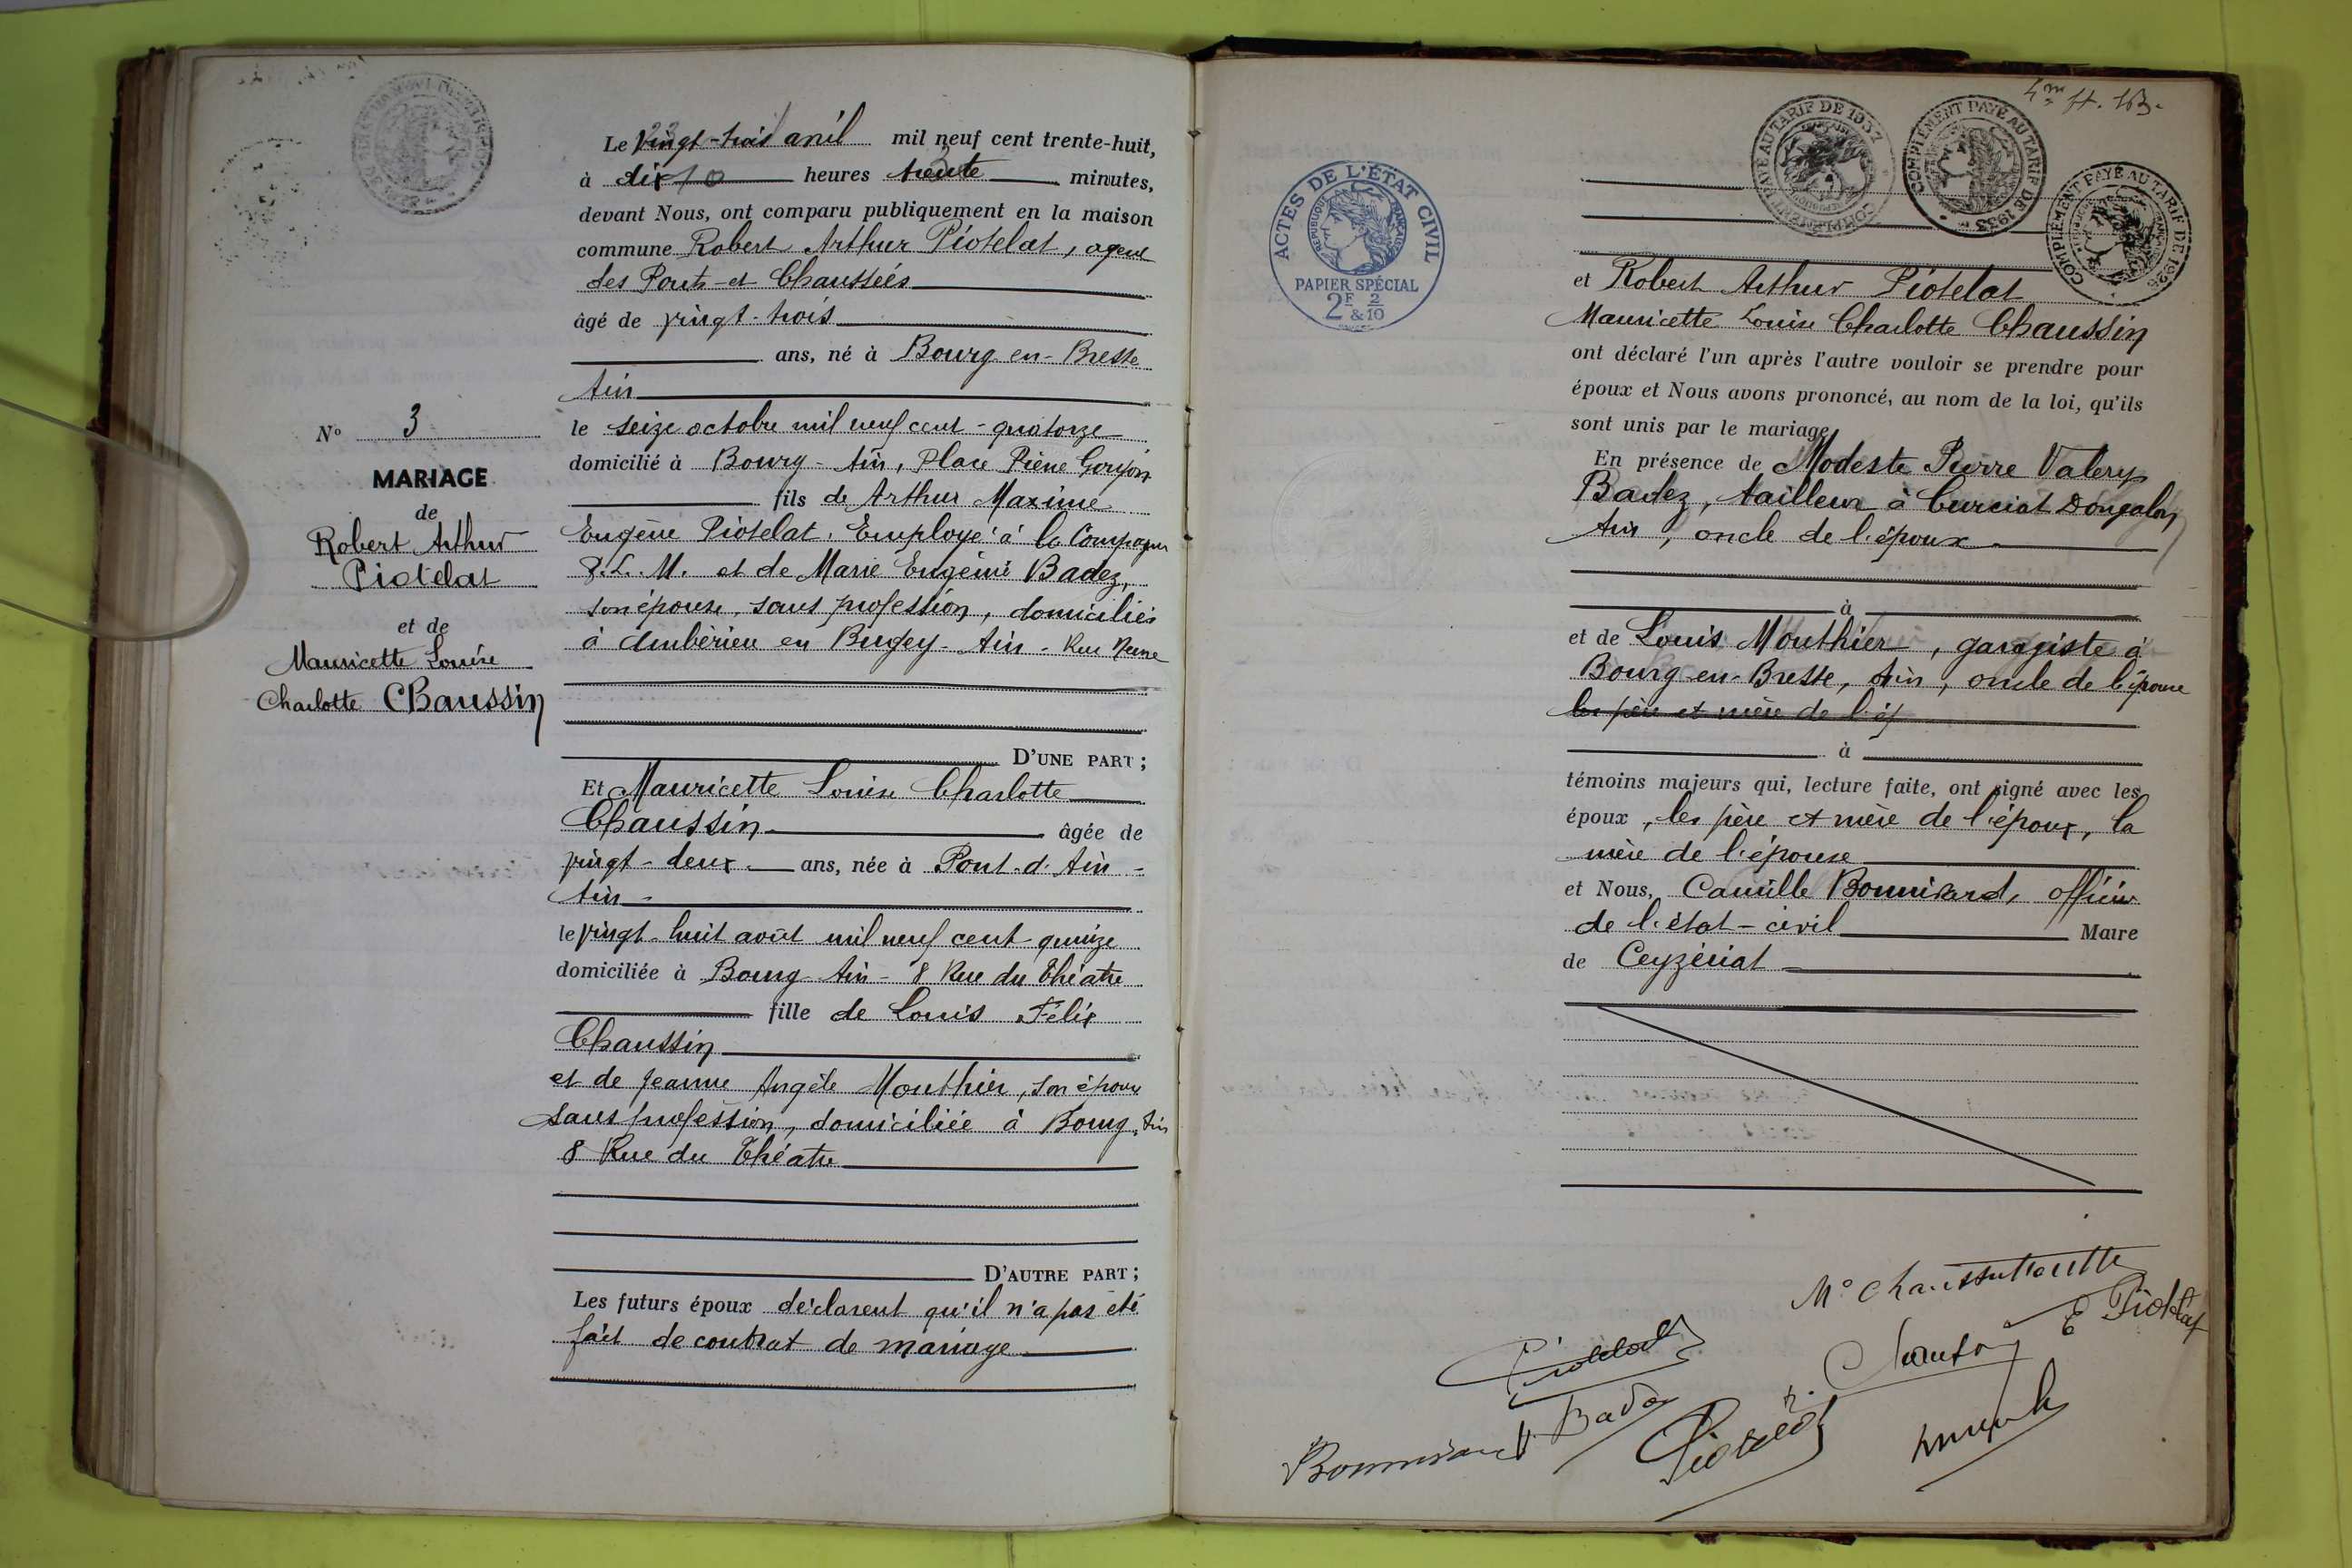 Le vingt-trois avril mil neuf cent trente-huit,
à dix heures trente minutes,
devant Nous, ont comparu publiquement en la maison
commune Robert Arthur Piotelat, agent
des Ponts-et Chaussées
âgé de vingt-trois
ans, né à Bourg-en-Bresse
Ain
le seize octobre mil neuf cent-quatorze
domicilié à Bourg-Ain, Place Pierre Goujon
fils de Arthur Maxime
Eugène Piotelat, Employé à la Compagnie
P.L.M. et de Marie Eugénie Badez,
son épouse, sans profession, domiciliés
à Ambérieu en Bugey-Ain-Rue
D'UNE PART;
Et Mauricette Louise Charlotte
Chaussin âgée de
vingt-deux ans, née à Pont-d'Ain-
Ain-
le vingt-huit août mil neuf cent quinze
domiciliée à Bourg-Ain-8 Rue du Théatre
fille de Louis Félix
Chaussin
et de Jeanne Angèle Mouthier, son épouse
sans profession, domiciliée à Bourg, Ain
8 Rue du Théatre
D'AUTRE PART;
Les futurs époux déclarent qu'il n'a pas été
fait de contrat de mariage
N° 3
MARIAGE
de
Robert Arthur
Piotelat
et de
Mauricette Louise
Charlotte Chaussin
ACTES DE L'ÉTAT CIVIL
RÉPUBLIQUE FRANÇAISE
PAPIER SPÉCIAL
2F & 2/10
COMPLÉMENT PAYÉ AU TARIF DE 1937
COMPLÉMENT PAYÉ AU TARIF DE 1933
COMPLÉMENT PAYÉ AU TARIF DE 1926
et Robert Arthur Piotelat
Mauricette Louise Charlotte Chaussin
ont déclaré l'un après l'autre vouloir se prendre pour
époux et Nous avons prononcé, au nom de la loi, qu'ils
sont unis par le mariage
En présence de Modeste Pierre Valery
Badez, tailleur à Curciat Dongalon
Ain, oncle de l'époux
à
et de Louis Mouthier, garagiste à
Bourg-en-Bresse, Ain, oncle de l'épouse
les père et mère de l'ép
à
témoins majeurs qui, lecture faite, ont signé avec les
époux, les père et mère de l'époux, la
mère de l'épouse
et Nous, Camille Bonnivard, officier
de l'état-civil Maire
de Ceyzériat
E Piotelat
Piotelat
Badez
Bonnivard
Piotelat